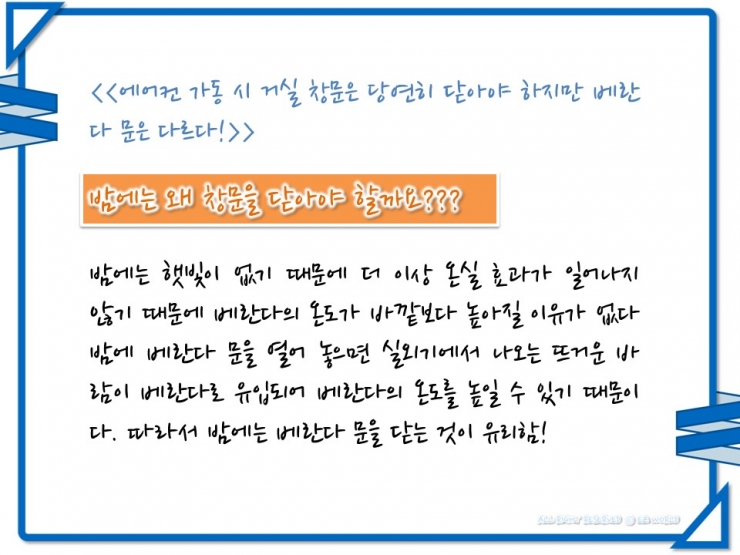 <<에어컨 가동 시 거실 창문은 당연히 닫아야 하지만 베란
다 문은 다르다!>>
밤에는 왜 창문을 닫아야 할까요???
밤에는 햇빛이 없기 때문에 더 이상 온실 효과가 일어나지
않기 때문에 베란다의 온도가 바깥보다 높아질 이유가 없다
밤에 베란다 문을 열어 놓으면 실외기에서 나오는 뜨거운 바
람이 베란다로 유입되어 베란다의 온도를 높일 수 있기 때문이
다. 따라서 밤에는 베란다 문을 닫는 것이 유리함!